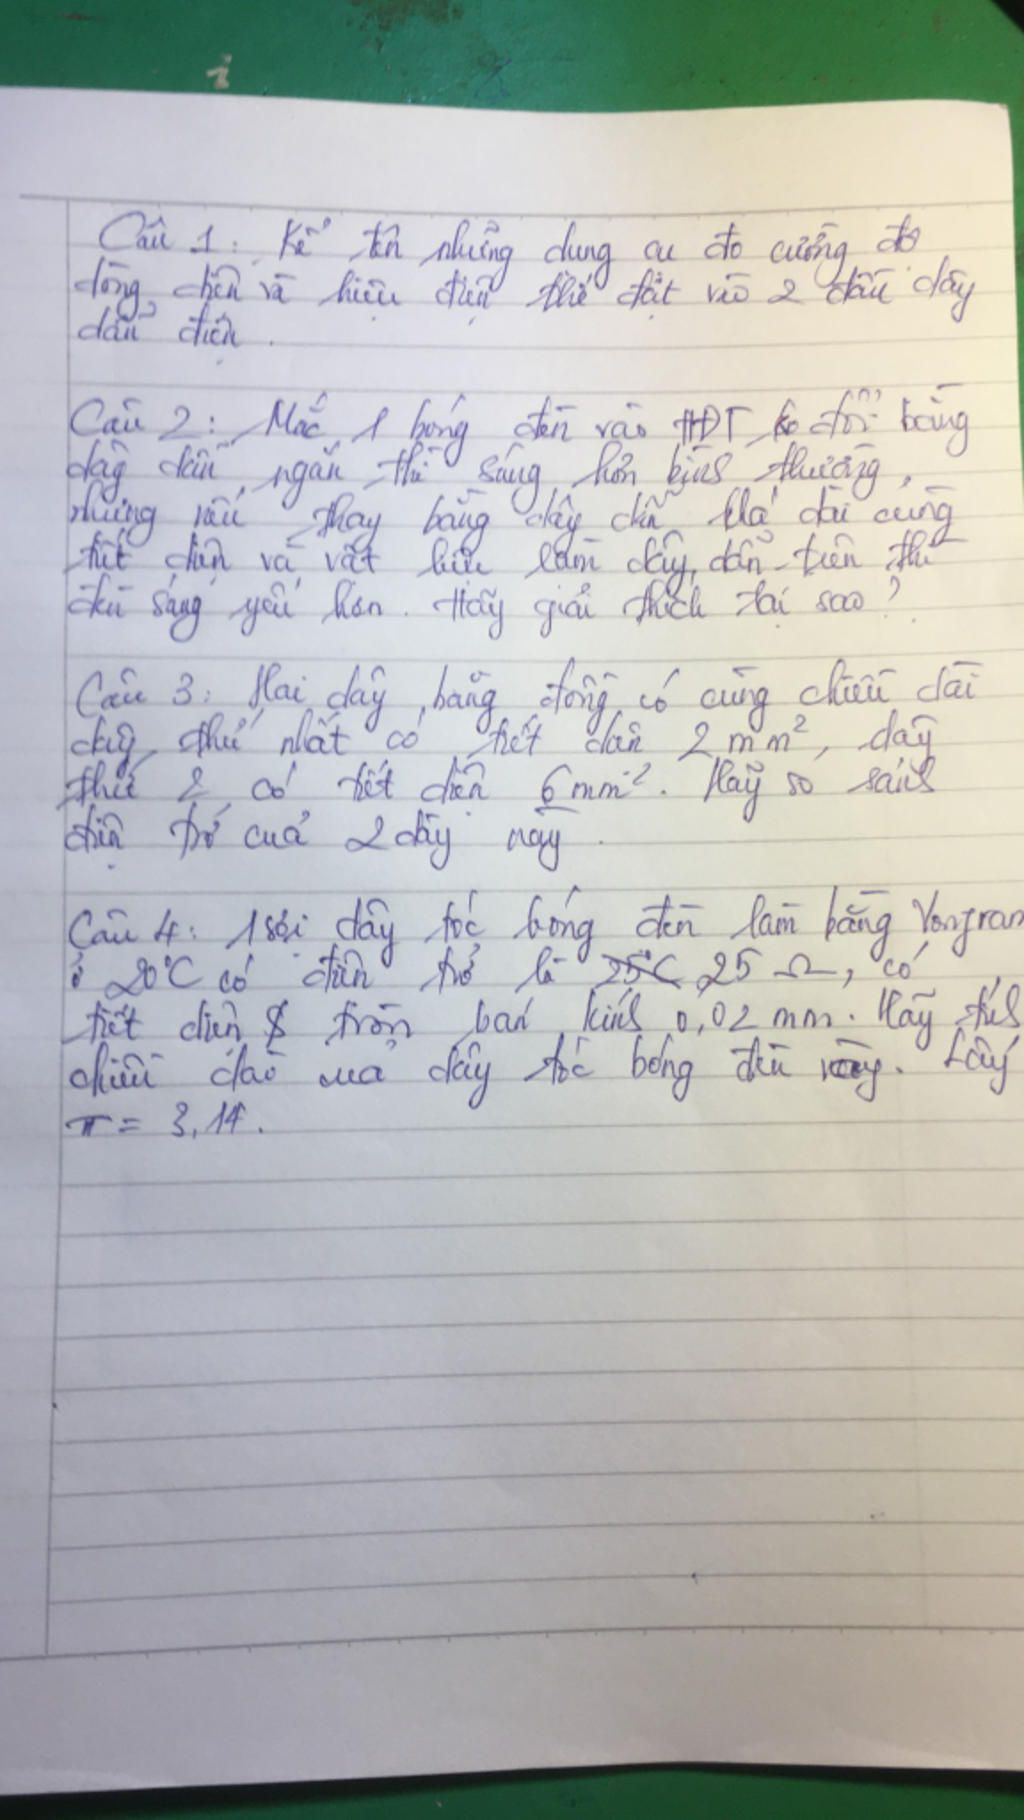 Câu 1: Kể tên những dụng cụ đo cường độ
dòng điện và hiệu điện thế đặt vào 2 đầu dây
dẫn điện.
Câu 2: Mắc 1 bóng đèn vào HĐT ko đổi bằng
dây dẫn ngắn thì sáng hơn bình thường,
nhưng nếu thay bằng dây dẫn khá dài cùng
tiết diện và vật liệu làm dây dẫn trên thì
đèn sáng yếu hơn. Hãy giải thích tại sao?
Câu 3: Hai dây bằng đồng có cùng chiều dài
dây thứ nhất có tiết diện 2 mm², dây
thứ 2 có tiết diện 6 mm². Hãy so sánh
điện trở của 2 dây này.
Câu 4: 1 sợi dây tóc bóng đèn làm bằng Vonfram
ở 20°C có điện trở là 25 Ω, có
tiết diện tròn bán kính 0,02 mm. Hãy tính
chiều dài của dây tóc bóng đèn này. Lấy
π = 3,14.